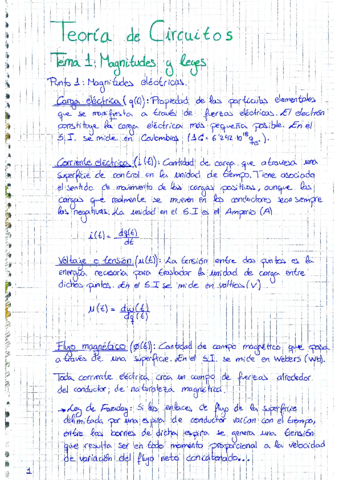 Teoría de Circuitos
Tema 1: Magnitudes y leyes
Punto 1: Magnitudes eléctricas.
Carga eléctrica (q(t)): Propiedad de las partículas elementales
que se manifiesta a través de fuerzas eléctricas. El electrón
constituye la carga eléctrica más pequeña posible. En el
S.I. se mide en Coulombios (1C =
Corriente eléctrica (i(t)): Cantidad de carga que atraviesa una
superficie de control en la unidad de tiempo. Tiene asociada
el sentido de movimiento de las cargas positivas, aunque las
cargas que realmente se mueven en los conductores sean siempre
las negativas. La unidad en el S.I es el Amperio (A)
i(t) = dq(t)/dt
Voltaje o tensión (u(t)): La tensión entre dos puntos es la
energía necesaria para trasladar la unidad de carga entre
dichos puntos. En el S.I se mide en voltios (V)
u(t) = dw(t)/dq(t)
Flujo magnético (φ(t)): Cantidad de campo magnético que pasa
a través de una superficie. En el S.I. se mide en Webers (Wb).
Toda corriente eléctrica crea un campo de fuerzas alrededor
del conductor, de naturaleza magnética.
Ley de Faraday: Si los enlaces de flujo de la superficie
delimitada por una espira de conductor varían con el tiempo,
entre los bornes de dicha espira se genera una tensión
que resulta ser en todo momento proporcional a la velocidad
de variación del flujo neto concatenado...
1